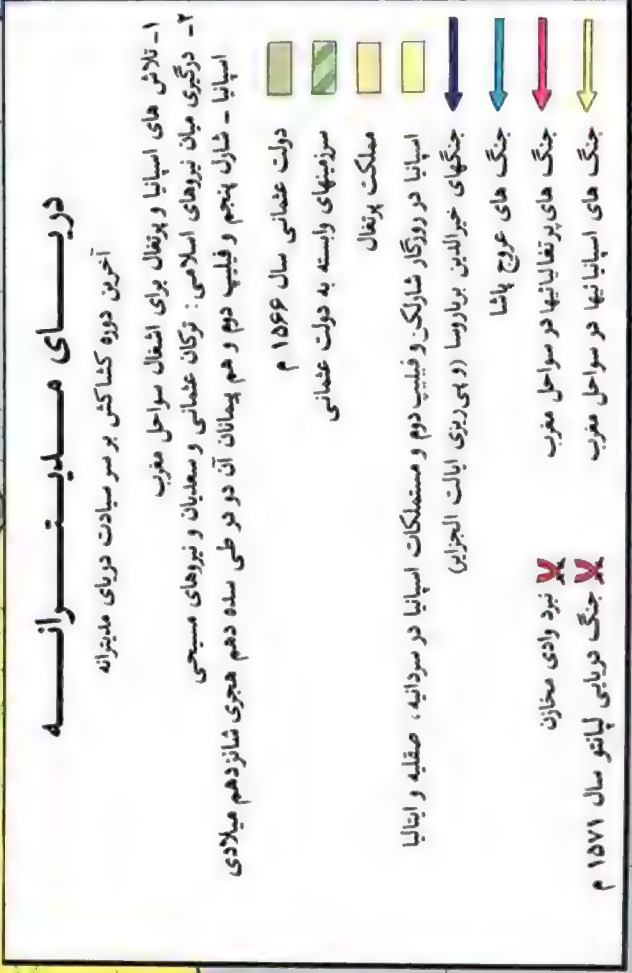 دریای مدیترانه
آخرین دوره کشاکش بر سر سیادت دریای مدیترانه
۱- تلاش های اسپانیا و پرتغال برای اشغال سواحل مغرب
۲- درگیری میان نیروهای اسلامی: ترکان عثمانی و سعدیان و نیروهای مسیحی
اسپانیا - شارل پنجم و فیلیپ دوم و هم پیمانان آن دو در طی سده دهم هجری شانزدهم میلادی
دولت عثمانی سال ۱۵۶۶ م
سرزمینهای وابسته به دولت عثمانی
مملکت پرتغال
اسپانیا در روزگار شارلکن و فیلیپ دوم و مستملکات اسپانیا در سردانیه، صقلیه و ایتالیا
جنگهای خیرالدین برباروسا (و پی ریزی ایالت الجزایر)
جنگ های عروج پاشا
جنگ های پرتغالیانیها در سواحل مغرب
جنگ های اسپانیائیها در سواحل مغرب
نبرد وادی مخازن
جنگ دریایی لپانتو سال ۱۵۷۱ م